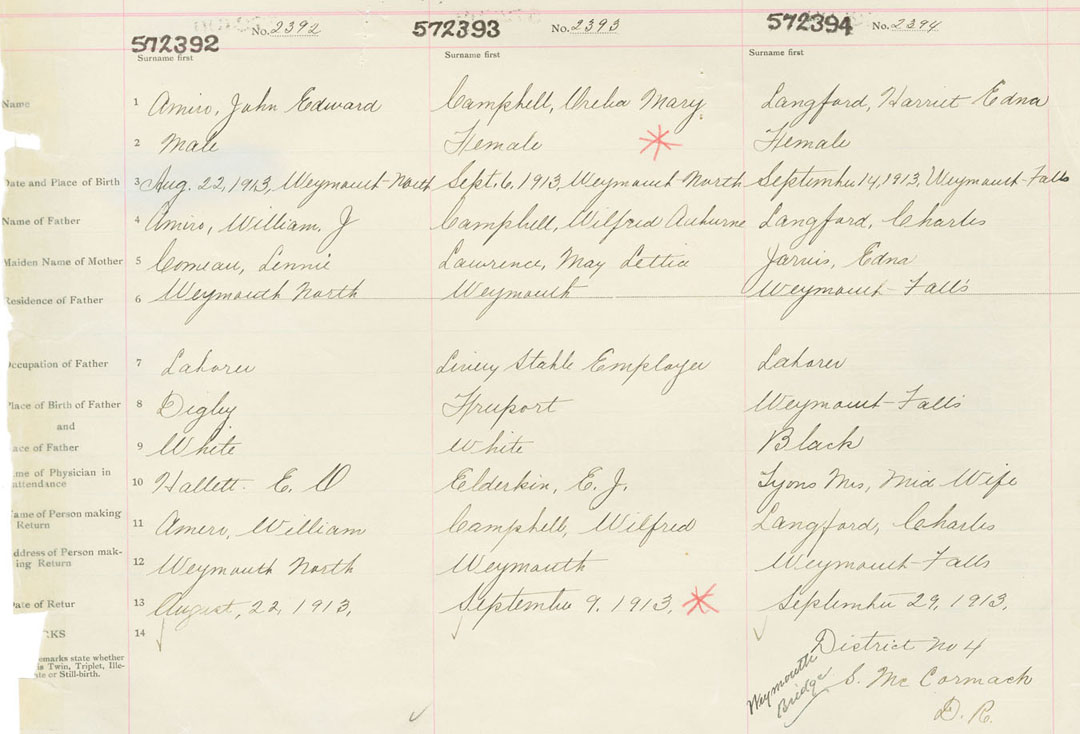 572392 No. 2392 572393 No. 2393 572394 No. 2394
Surname first Surname first Surname first
Name 1 Amiro, John Edward Campbell, Orelia Mary Langford, Harriet Edna
2 Male Female Female
Date and Place of Birth 3 Aug. 22, 1913, Weymouth North Sept. 6, 1913, Weymouth North September 14, 1913, Weymouth-Falls
Name of Father 4 Amiro, William, J Campbell, Wilfred Langford, Charles
Maiden Name of Mother 5 Comeau, Lennie Lawrence, May Lettia Jarvis, Edna
Residence of Father 6 Weymouth North Weymouth Weymouth-Falls
Occupation of Father 7 Laborer Livery Stable Employer Laborer
Place of Birth of Father 8 Digby Freeport Weymouth-Falls
and
ace of Father 9 White White Black
me of Physician in
attendance 10 Hallett. E. O Elderkin, E. J. Lyons Mrs, Mid Wife
ame of Person making
Return 11 Amero, William Campbell, Wilfred Langford, Charles
ddress of Person mak-
ing Return 12 Weymouth North Weymouth Weymouth-Falls
Date of Retur 13 August, 22, 1913, September 9, 1913. September 29, 1913.
KS 14
emarks state whether
is Twin, Triplet, Ille-
ate or Still-birth.
District No 4
Weymouth
Bridge
S. McCormack
D. R.